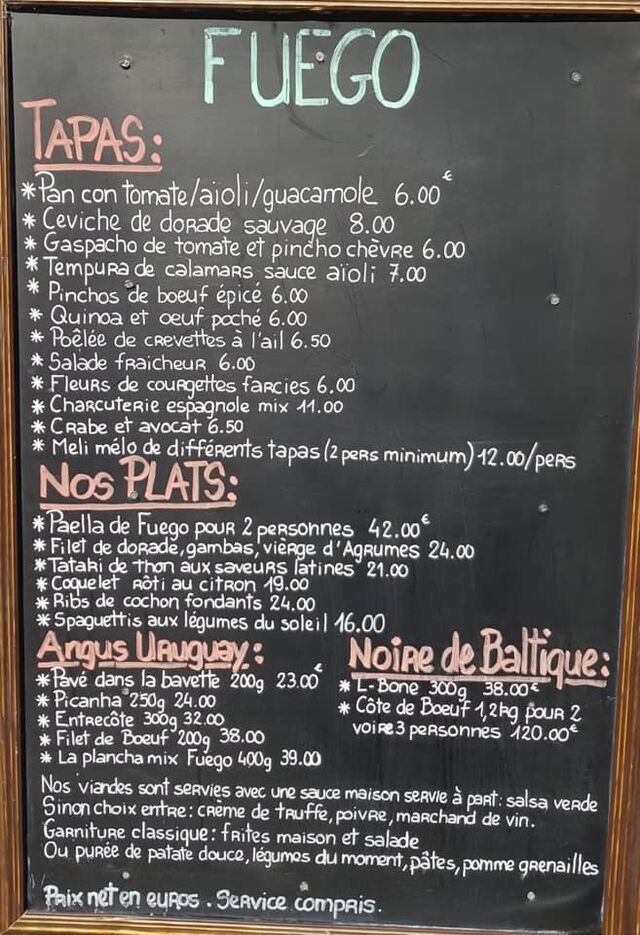 FUEGO
TAPAS:
* Pan con tomate/aïoli/guacamole 6.00€
* Ceviche de dorade sauvage 8.00
* Gaspacho de tomate et pincho chèvre 6.00
* Tempura de calamars sauce aïoli 7.00
* Pinchos de boeuf épicé 6.00
* Quinoa et oeuf poché 6.00
* Poêlée de crevettes à l'ail 6.50
* Salade fraicheur 6.00
* Fleurs de courgettes farcies 6.00
* Charcuterie espagnole mix 11.00
* Crabe et avocat 6.50
* Meli mélo de différents tapas (2 pers minimum) 12.00/pers
Nos PLATS:
* Paella de Fuego pour 2 personnes 42.00€
* Filet de dorade, gambas, vièrge d'Agrumes 24.00
* Tataki de thon aux saveurs latines 21.00
* Coquelet rôti au citron 19.00
* Ribs de cochon fondants 24.00
* Spaguettis aux légumes du soleil 16.00
Angus Uruguay:
* Pavé dans la bavette 200g 23.00€
* Picanha 250g 24.00
* Entrecôte 300g 32.00
* Filet de Boeuf 200g 38.00
* La plancha mix Fuego 400g 39.00
Noire de Baltique:
* L-Bone 300g 38.00€
* Côte de Boeuf 1,2kg pour 2
voire 3 personnes 120.00€
Nos viandes sont servies avec une sauce maison servie à part: salsa verde
Sinon choix entre: crème de truffe, poivre, marchand de vin.
Garniture classique: frites maison et salade
Ou purée de patate douce, légumes du moment, pâtes, pomme grenailles
Prix net en euros. Service compris.